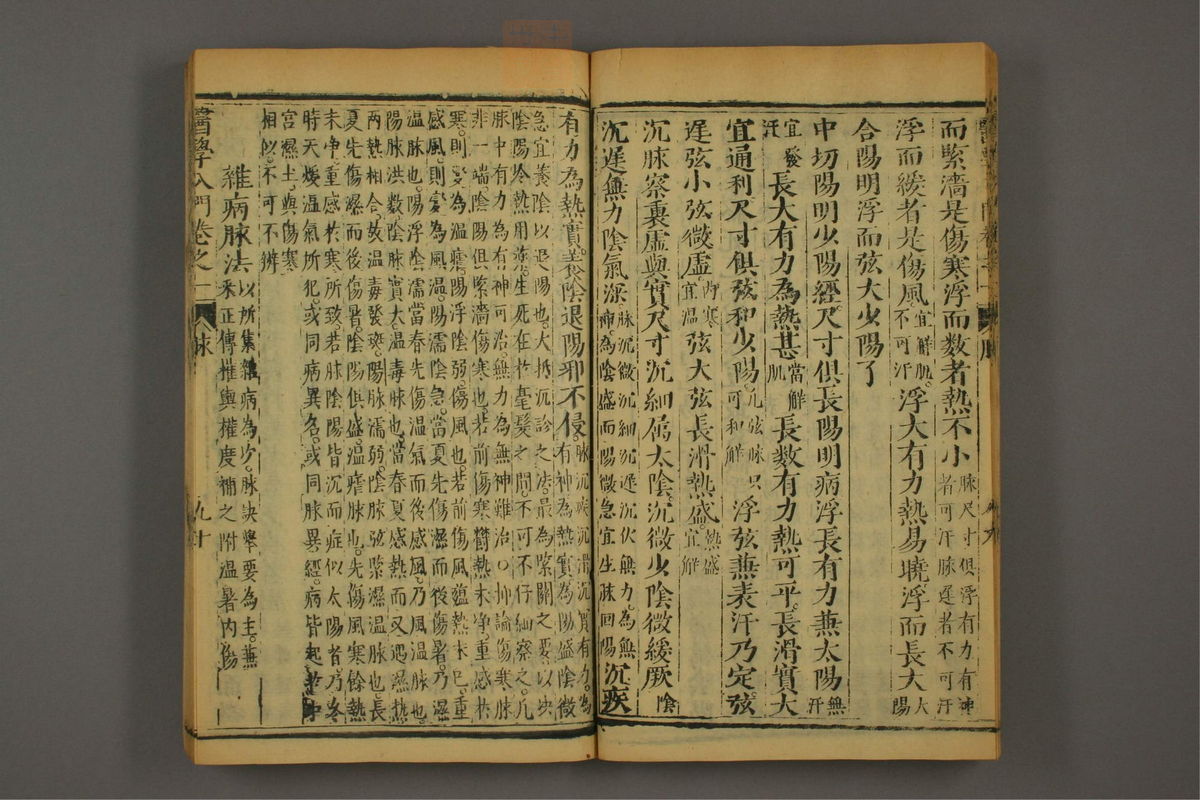 而緊濇是傷寒浮而数者熱不小脉尺寸俱浮有力有神者可汗脉遲者不可汗
浮而緩者是傷風宜解肌不可汗浮大有力熱易曉浮而長大太陽
合陽明浮而弦大少陽了
中切陽明少陽經尺寸俱長陽明病浮長有力兼太陽無汗
宜發汗長大有力為熱甚當解肌長数有力熱可平長滑實大
宜通利尺寸俱弦和少陽凡弦脉只可和解浮弦兼表汗乃定弦
遲弦小弦微虛内寒宜温弦大弦長滑熱盛熱盛宜解
沉脉察裏虛與實尺寸沉細属太陰沉微少陰微緩厥陰
沉遲無力陰氣深脉沉微沉細沉遲沉伏無力為無神為陰盛而陽微急宜生脉回陽沉疾
有力為熱實養陰退陽邪不侵脉沉疾沉滑沉實有力為有神為熱實為陽盛陰微
急宜養陰以退陽也大抵沉診之法最為緊關之要以决
陰陽冷熱用藥生死在於毫髮之間不可不仔細察之凡
脉中有力為有神可治無力為無神難治○抑論傷寒脉
非一端陰陽俱緊濇傷寒也若前傷寒欝熱未净重感於
寒則變為温瘧陽浮陰弱傷風也若前傷風蘊熱未已重
感風則變為風温陽濡陰急當夏先傷濕而後傷暑乃濕
温脉也陽浮陰濡當春先傷温氣而後感風乃風温脉也
陽脉洪数陰脉實大温毒脉也當春夏感熱而又遇濕熱
两熱相合故温毒發斑陽脉濡弱陰脉弦緊濕温脉也長
夏先傷濕而後傷暑陰陽俱盛温瘧脉也先傷風寒餘熱
未净重感於寒所致若脉陰陽皆沉而症似太陽者乃冬
時天煖温氣所犯或同病異名或同脉異經病皆起於中
宫濕土與傷寒
相似不可不辨
雜病脉法以所集雜病為少脉訣舉要為主兼采正傳權輿權度補之附温暑内傷
醫學入門卷之一
脉
九十